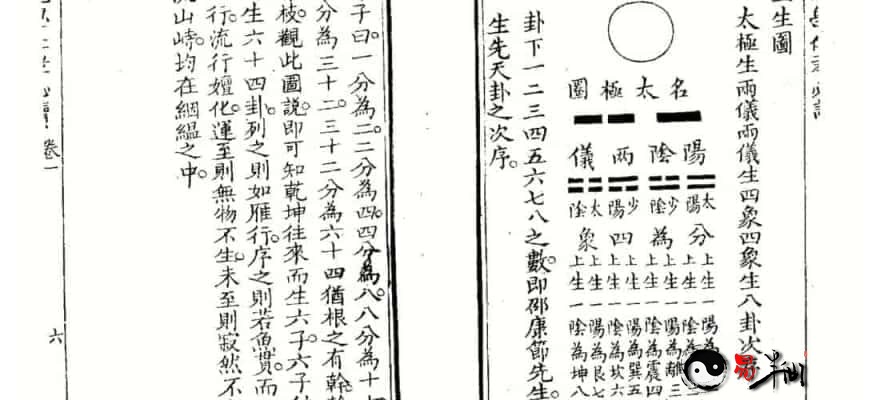 生圖
太極生兩儀兩儀生四象四象生八卦次
名太極圈
陽陰兩儀
太陽 少陰 少陽 太陰
分為四象
上生一陽為
上生一陰為
上生一陽為離三
上生一陰為震四
上生一陽為巽五
上生一陰為坎六
上生一陽為艮七
上生一陰為坤八
卦下一二三四五六七八之數。即邵康節先生。
生先天卦之次序。
子曰。一分為二。二分為四。四分為八。八分為十
分為三十二。三十二分為六十四。猶根之有幹。
枝。觀此圖說。即可知乾坤往來而生六子。六子
生六十四卦。列之則如雁行。序之則若魚貫。而
行流行嬗化。運至則無物不生。未至則寂然不
山峙。均在絪縕之中。
卷一
六